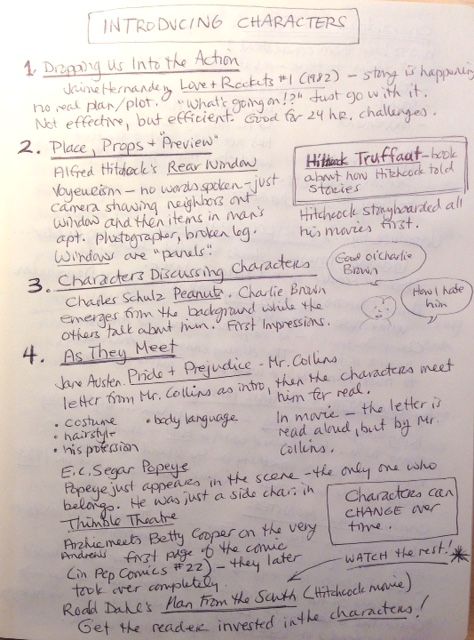 INTRODUCING CHARACTERS
1. Dropping Us Into the Action
Jaime Hernandez Love + Rockets #1 (1982) – story is happening
no real plan/plot. "What's going on!?" Just go with it.
Not effective, but efficient. Good for 24 hr. challenges.
2. Place, Props + "Preview"
Alfred Hitchcock's Rear Window
Voyeurism – no words spoken – just
camera showing neighbors out
window and then items in man's
apt. photographer, broken leg.
Windows are "panels".
Truffaut – book
about how Hitchcock told
stories
Hitchcock storyboarded all
his movies first.
3. Characters Discussing Characters
Charles Schulz Peanuts. Charlie Brown
emerges from the background while the
others talk about him. First Impressions.
Good ol' Charlie
Brown
How I hate
him
4. As They Meet
Jane Austen. Pride + Prejudice – Mr. Collins
letter from Mr. Collins as intro, then the characters meet
him for real.
• costume
• hairstyle
• his profession
• body language
In movie – the letter is
read aloud, but by Mr.
Collins.
E.C. Segar Popeye
Popeye just appears in the scene – the only one who
belongs. He was just a side char. in
Thimble Theatre
Characters can
CHANGE over
time.
Archie Andrews meets Betty Cooper on the very
first page of the comic
(in Pep Comics #22) – they later
took over completely.
WATCH the rest!
Roald Dahl's Man From the South (Hitchcock movie)
Get the reader invested in the characters!